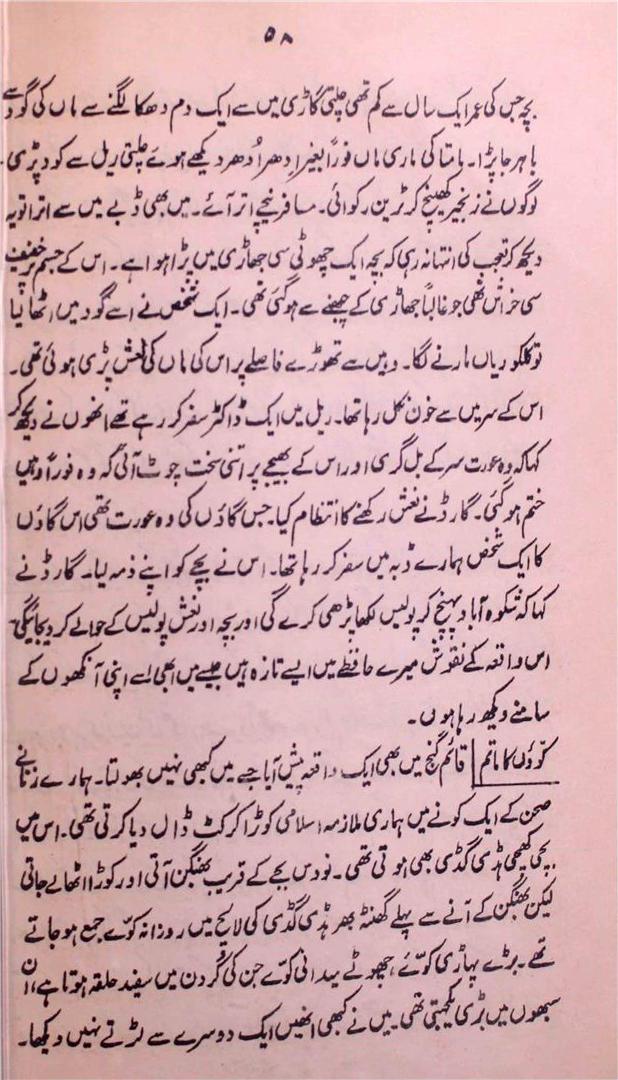 ۵۸
بچہ جس کی عمر ایک سال سے کم تھی چلتی گاڑی میں سے ایک دم دھکا لگنے سے ماں کی گود سے
باہر جا پڑا۔ مامتا کی ماری ماں فوراً بغیر اِدھر اُدھر دیکھے ہوئے چلتی ریل سے کود پڑی۔
لوگوں نے زنجیر کھینچ کر ٹرین رکوائی۔ مسافر نیچے اتر آئے۔ میں بھی ڈبے میں سے اترا تو یہ
دیکھ کر تعجب کی انتہا نہ رہی کہ بچہ ایک چھوٹی سی جھاڑی میں پڑا ہوا ہے۔ اس کے جسم پر خفیف
سی خراش تھی جو غالباً جھاڑی کے چبھنے سے ہو گئی تھی۔ ایک شخص نے اسے گود میں اٹھا لیا
تو کلکوریاں مارنے لگا۔ وہیں سے تھوڑے فاصلے پر اس کی ماں کی نعش پڑی ہوئی تھی۔
اس کے سر میں سے خون نکل رہا تھا۔ ریل میں ایک ڈاکٹر سفر کر رہے تھے انھوں نے دیکھ کر
کہا کہ وہ عورت سر کے بل گری اور اس کے بھیجے پر اتنی سخت چوٹ آئی کہ وہ فوراً وہیں
ختم ہو گئی۔ گارڈ نے نعش رکھنے کا انتظام کیا۔ جس گاؤں کی وہ عورت تھی اس گاؤں
کا ایک شخص ہمارے ڈبہ میں سفر کر رہا تھا۔ اس نے بچے کو اپنے ذمہ لیا۔ گارڈ نے
کہا کہ شکوہ آباد پہنچ کر پولیس لکھا پڑھی کرے گی اور بچہ اور نعش پولیس کے حوالے کر دیجائیگی
اس واقعہ کے نقوش میرے حافظے میں ایسے تازہ ہیں جیسے میں ابھی اسے اپنی آنکھوں کے
سامنے دیکھ رہا ہوں۔
کوّوں کا ماتم قائم گنج میں بھی ایک واقعہ پیش آیا جسے میں کبھی نہیں بھولتا۔ ہمارے زنانے
صحن کے ایک کونے میں ہماری ملازمہ اسلامی کوڑا کرکٹ ڈال دیا کرتی تھی۔ اس میں
بچی کھچی ہڈی گڈی بھی ہوتی تھی۔ نو دس بجے کے قریب بھنگن آتی اور کوڑا اٹھالے جاتی
لیکن بھنگن کے آنے سے پہلے گھنٹہ بھر ہڈی گڈی کی لالچ میں روزانہ کوّے جمع ہو جاتے
تھے۔ بڑے پہاڑی کوّے، چھوٹے میدانی کوّے جن کی گردن میں سفید حلقہ ہوتا ہے، ان
سبھوں میں بڑی یکجہتی تھی۔ میں نے کبھی انھیں ایک دوسرے سے لڑتے نہیں دیکھا۔